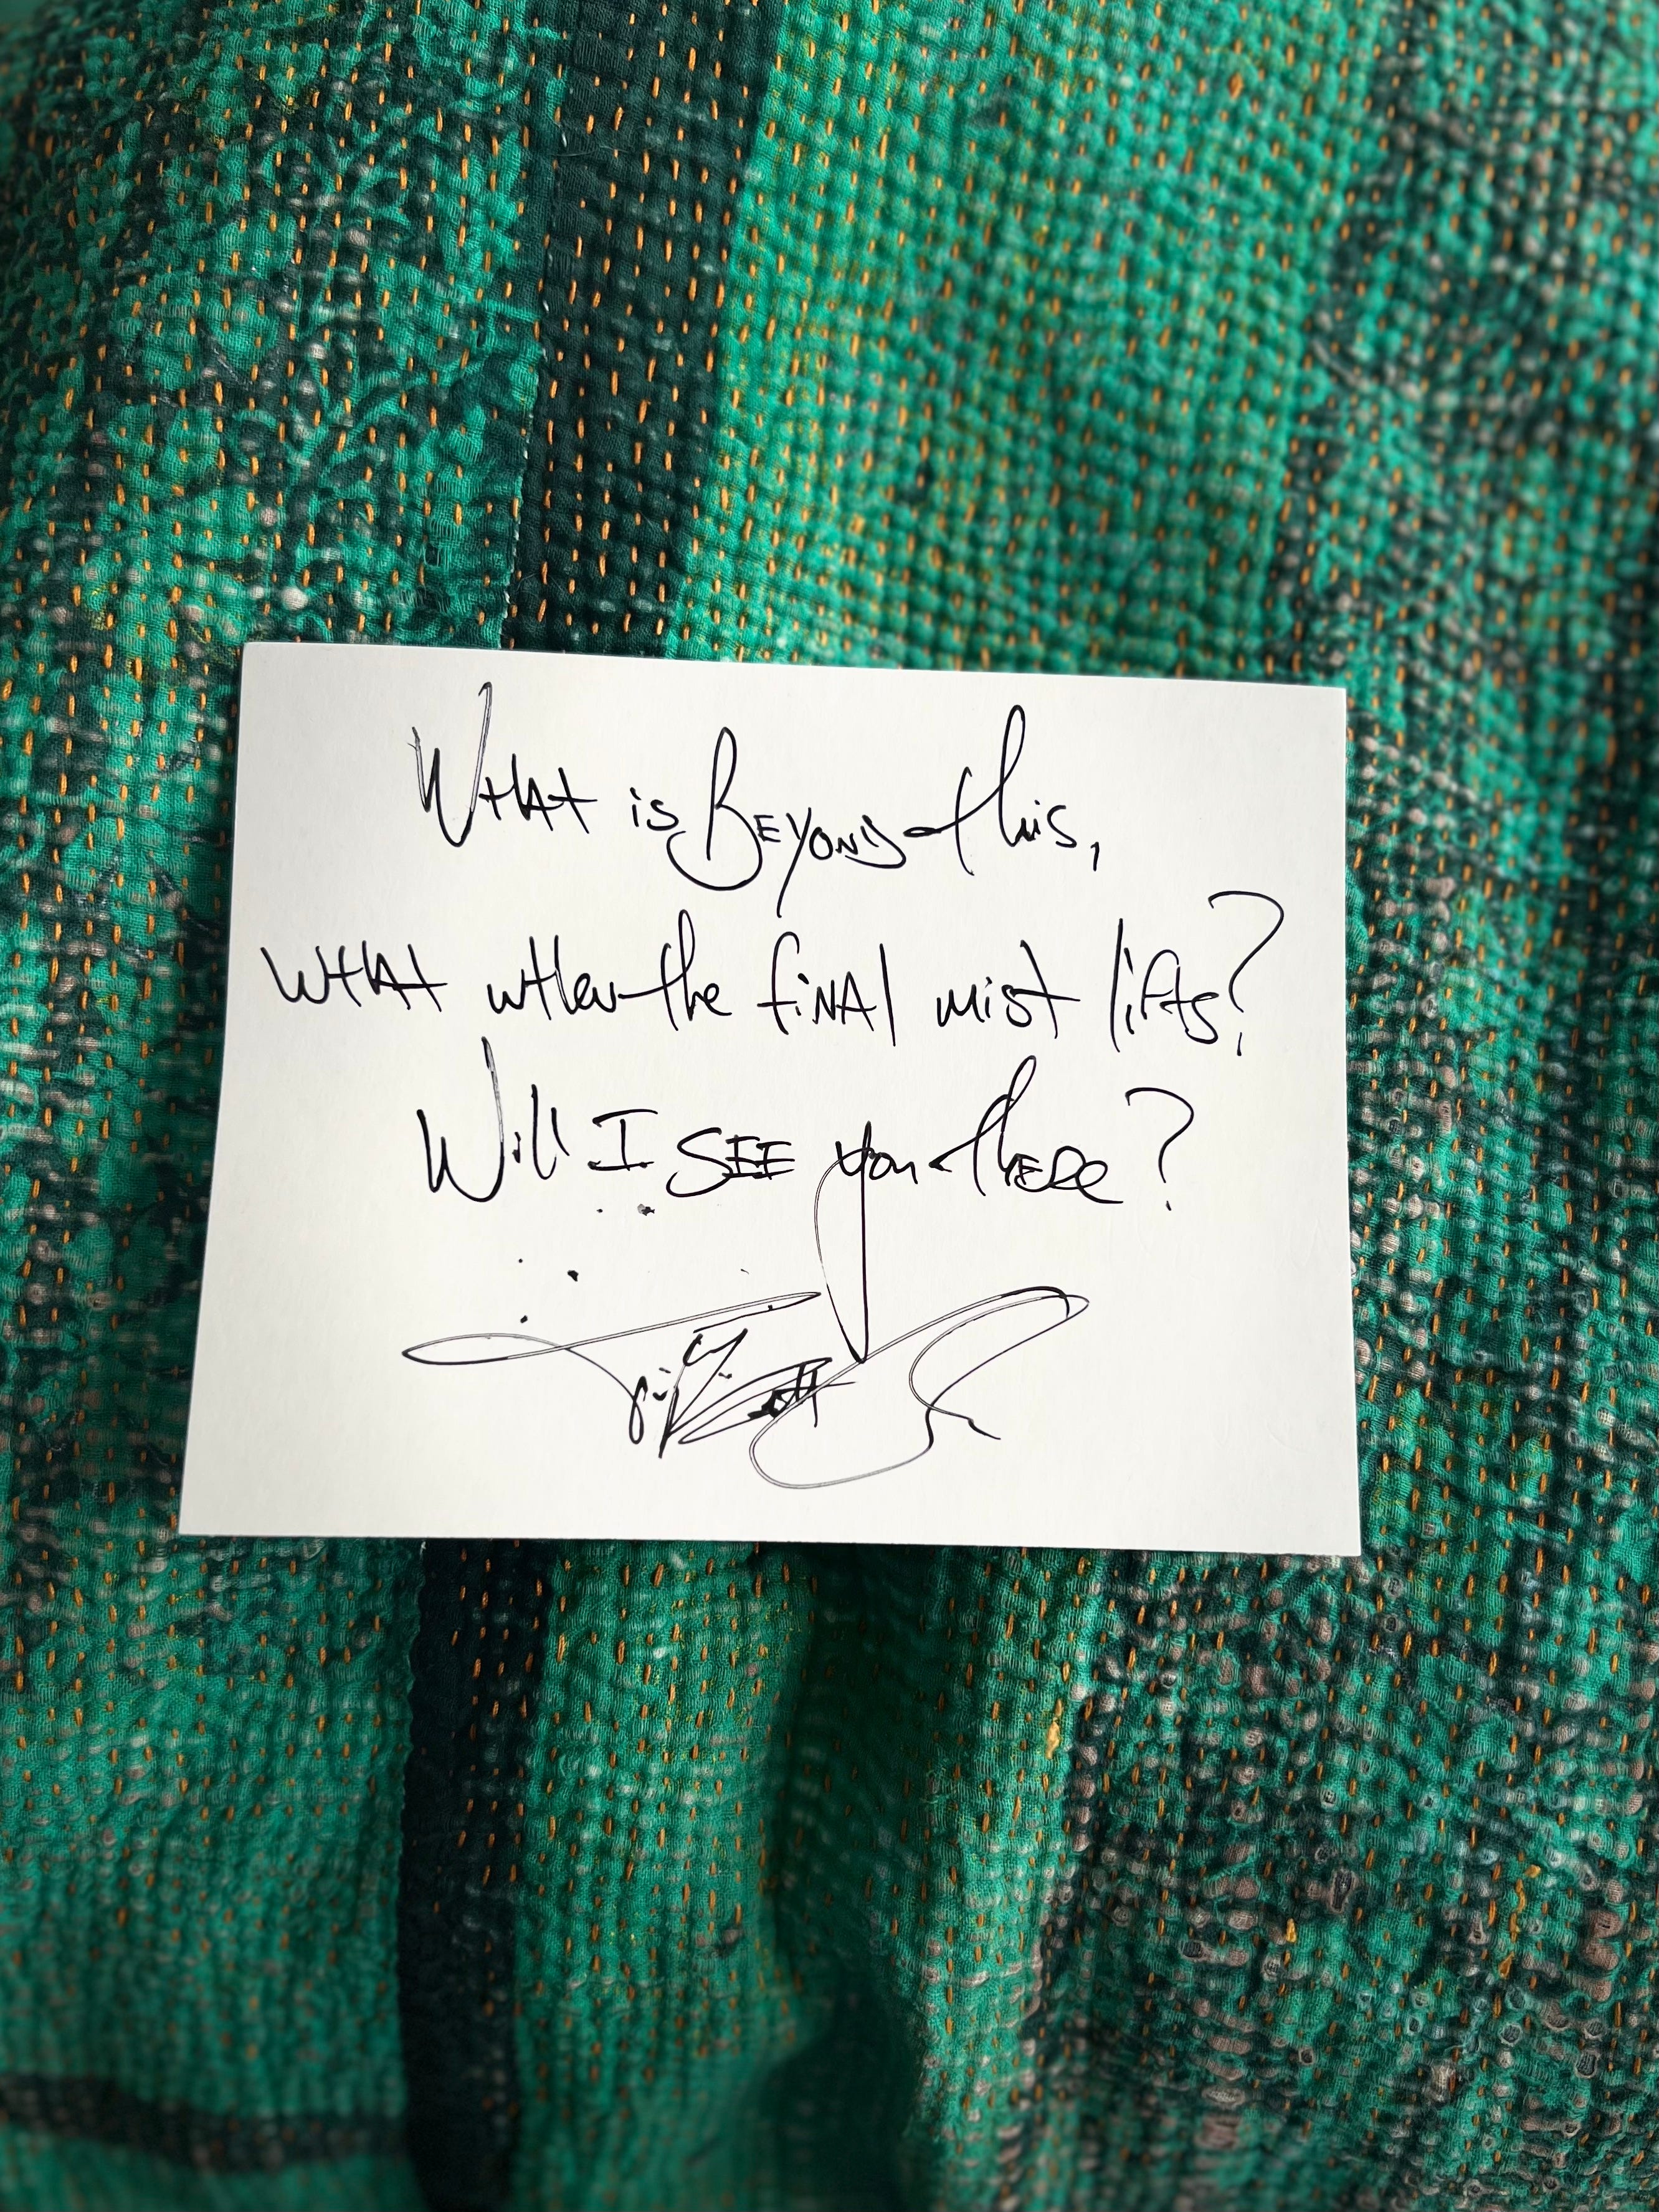 What is Beyond this,
what when the final mist lifts?
Will I see you there?